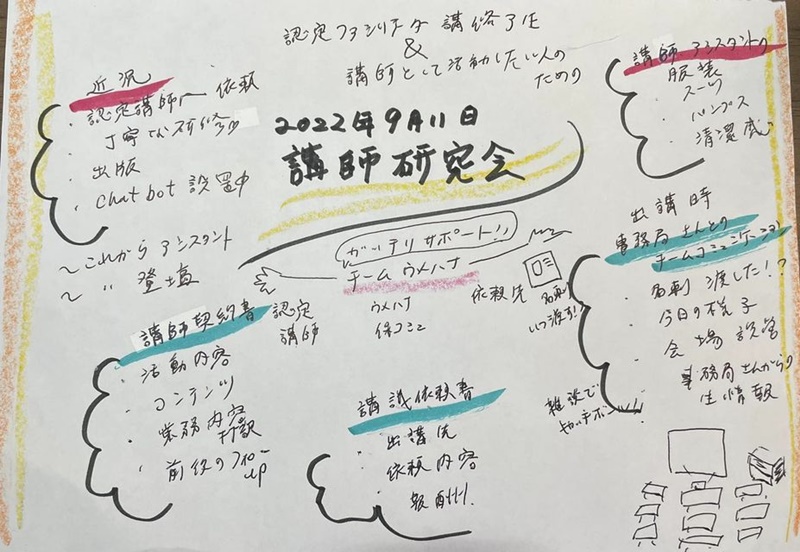 認定ファシリテータ 講修了生
&
講師として活動したい人の
ための
2022年9月11日
講師研究会
近況
・認定講師へ 依頼
丁寧な研修
・出版
・chat bot 設置中
〜これから アシスタント
〜 〃 登壇
講師アシスタントの
服装
スーツ
パンプス
清潔感
ガッテリ サポート!!
チーム ウメハナ
認定
講師
ウメハナ
保コミュ
依頼先
名刺
いつ渡す!
出講時
事務局さんとの
チームコミュニケーション
・名刺 渡した!?
・今日の様子
・会場設営
・事務局さんからの
生情報
雑談で
キャッチボール
講師契約書
・活動内容
・コンテンツ
・業務内容
・前後のフォロー
up
講議依頼書
出講先
依頼内容
報酬